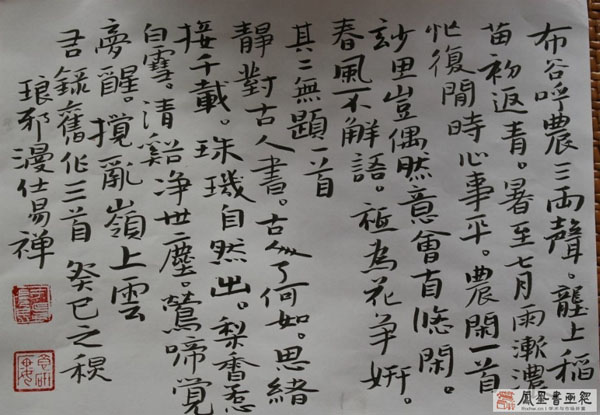 布谷呼農三兩聲。壟上稻
苗初返青。暑至七月雨漸濃
忙復閒時心事平。農閑一首
玅里豈偶然意會自悠閑。
春風不解語。祗為花爭妍。
其二無題一首
靜對古人書。古人何如。思緒
接千載。珠璣自然出。梨香惹
白雪。清谿净世塵。鶯啼覺
夢醒。攪亂嶺上雲
錄舊作三首 癸巳之秋
琅邪漫仕易禅